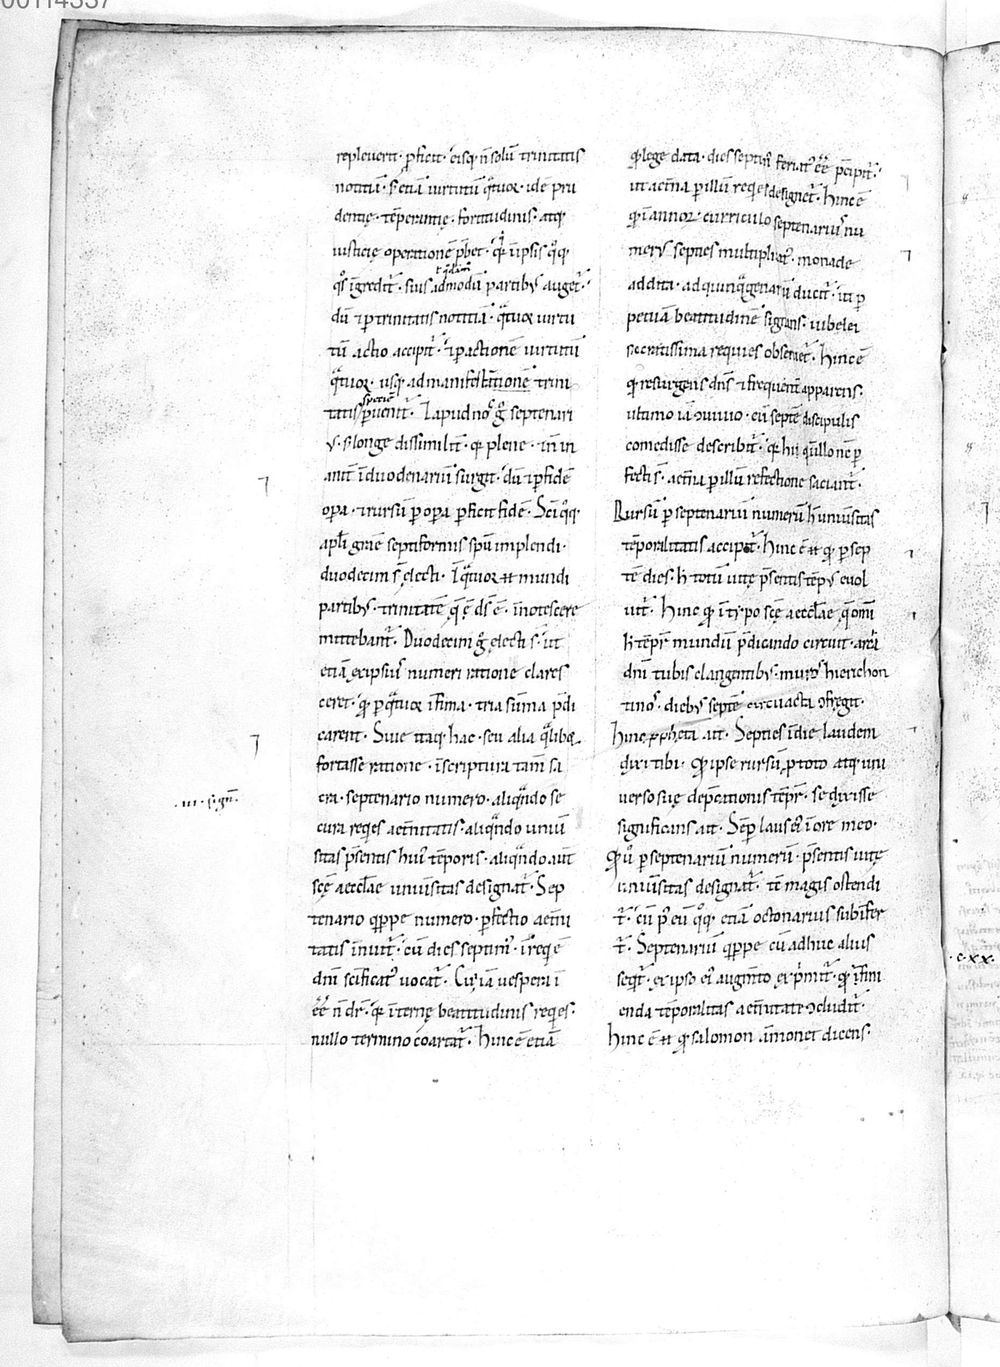 repleuerit · p̄ficit · eisq; n̄ solū trinitatis
notitiā · s; etiā uirtutū q̄tuor · idē pru
dentię · tēperantię · fortitudinis · atq;
iusticię operationē p̄bet · q̄ in ipsis q̄q;
q̄s ingredit᷑ · suis admodū partib; auget᷑ ·
dū & p trinitatis notitiā · q̄tuor uirtu
tū actio accipit᷑ · & p actionē uirtutū
q̄tuor · usq; ad manifestationē trini
tatis speciē peruenit᷑ · apud nos g̊ septenari
us · longe dissimilit᷑ · q; plene · in in
anit in duodenariū surgit · dū & p fidē
opa · & rursū p opa pficit fidē · Sc̄i q̊q;
apl̄i gr̄ae septiformis sp̄u implendi ·
duodecim s̄ electi · In q̄tuor & mundi
partib; · trinitatē q̄ ē d̄s ē · innotescere
mittebant᷑ · Duodecim g̊ electi s̄ · ut
etiā ex ipsius numeri ratione clares
ceret · q̄ p q̄tuor infima · tria sūma p̄di
carent · Siue itaq; hac · seu alia q̄lib;
fortasse ratione · in scriptura tam̄ sa
·III· sign̄·
cra · septenario numero · aliq̄ndo se
cura reqies aet̄nitatis · aliq̄ndo uniū
sitas p̄sentis hui᷑ tēporis · aliq̄ndo aut̄
sc̄ę aeccl̄ae uniūsitas designat᷑ · Sep
tenario q̄ppe numero · pfectio aet̄ni
tatis innuit᷑ · cū dies septim᷑ · in req̄ē
dn̄i sc̄ificat᷑ uocat᷑ · Cuj iā uespera i
ee n̄ dr̄ · q; internę beatitudinis reqies ·
nullo termino coartat᷑ · Hinc ē etiā
q; lege data · dies septim᷑ feriat᷑ ee p̄cipit᷑ ·
ut aet̄na p illū reqies designet᷑ · Hinc ē
q; in annoꝝ curriculo septenarius nu
mer᷑ septies multiplicat᷑ · monade
addita · ad quinq̄genariū ducit᷑ · ut p
petuā beatitudinē signans · iubelei
sacratissima requies obseruet᷑ · Hinc ē
q; resurgens dn̄s & frequent̄ apparens ·
ultimo iā conuiuio · cū septē discipulis
comedisse describit᷑ · q; hii q̄ in illo nc̄ p
fecti s̄ · aet̄na p illū refectione saciant᷑ ·
Rursū p septenariū numerū h uniūsitas
tēporalitatis accipit᷑ · Hinc ē & q; p sep
tē dies · h totū uitę p̄sentis tēp᷑ euol
uit᷑ · Hinc q; in typo sc̄ę aeccl̄ae q̄ om̄i
h tēpr̄ mundū p̄dicando circuit · arca
dn̄i tubis clangentib; · muros hierichon
tinos · dieb; septē circuacta cōfregit ·
Hinc ppheta ait · Septies in die laudem
dixi tibi · Q; ipse rursū p toto atq; uni
uerso suę dep̄cationis tēpr̄ · se dixisse
significans ait · Sēp laus ei᷑ in ore meo ·
Q; ū p septenariū numerū · p̄sentis uitę
uniūsitas designat᷑ · tē magis ostendi
t᷑ · cū p᷑ eū q̊q; etiā octonarius subinfer
t᷑ · Septenariū q̄ppe cū adhuc alius
seqt᷑ · ex ipso ei᷑ augm̄to exp̄mit᷑ · q; in fini
enda tēporalitas aet̄nitate cōcludit᷑ ·
Hinc ē & q; salomon āmonet dicens ·
·c·xx·